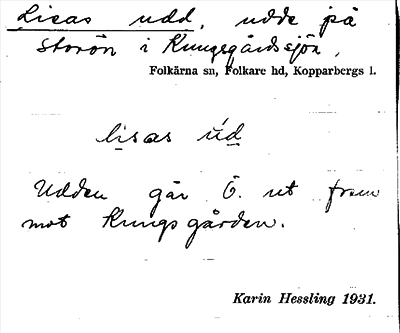 Lisas udd, udde på
Storön i Kungsgårdssjön,
Folkärna sn, Folkare hd, Kopparbergs l.
lisas úd
Udden går Ö. ut fram
mot Kungsgården.
Karin Hessling 1931.